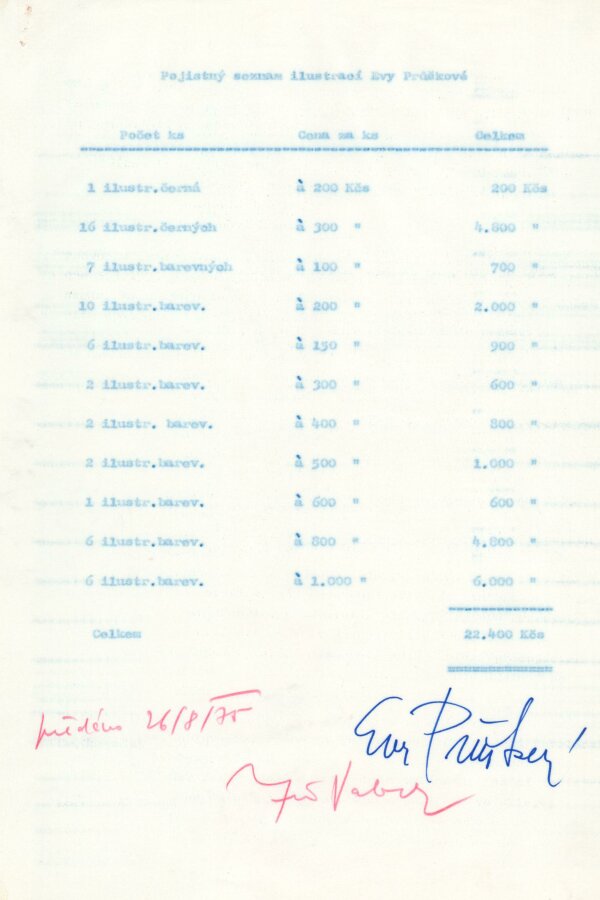 Pojistný seznam ilustrací Evy Průškové
Počet ks Cena za ks Celkem
1 ilustr.černá à 200 Kčs 200 Kčs
16 ilustr.černých à 300 " 4.800 "
7 ilustr.barevných à 100 " 700 "
10 ilustr.barev. à 200 " 2.000 "
6 ilustr.barev. à 150 " 900 "
2 ilustr.barev. à 300 " 600 "
2 ilustr. barev. à 400 " 800 "
2 ilustr.barev. à 500 " 1.000 "
1 ilustr.barev. à 600 " 600 "
6 ilustr.barev. à 800 " 4.800 "
6 ilustr.barev. à 1.000 " 6.000 "
Celkem 22.400 Kčs
26/8/75
Eva